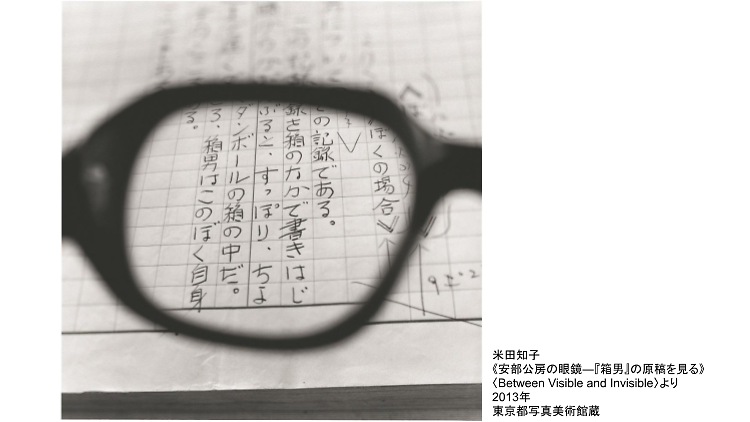 ぼくの場合》
の記録である。
録を箱のなかで書きはじ
ぶると、すっぽり、ちょ
ダンボールの箱の中だ。
ろ、箱男はこのぼく自身
る。
米田知子
《安部公房の眼鏡—『箱男』の原稿を見る》
〈Between Visible and Invisible〉より
2013年
東京都写真美術館蔵